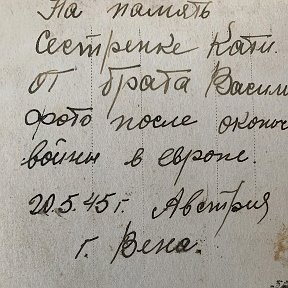 На память
Сестренке Кати.
от брата Васили
фото после оконч
войны в европе.
20.5.45 г. Австрия
г. Вена.